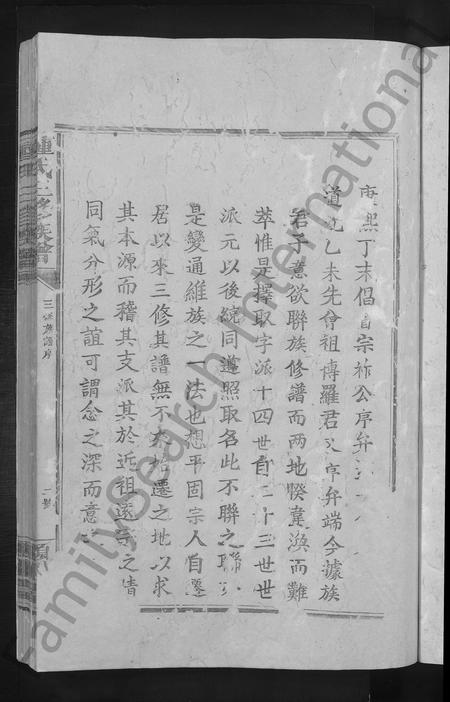 康熙丁未倡首宗祚公序弁
道光乙未先曾祖傳羅君又序弁端今據族
君子意欲聯族修譜而兩地暌違渙而難
萃惟是擇取字派十四世自二十三世世
派元以後統同遵照取名此不聯之聯
是變通維族之一法也想平固宗人自遷
居以來三修其譜無不於始遷之地以求
其本源而稽其支派其於近祖遠宗之情
同氣分形之誼可謂念之深而意
鍾氏三修族譜
三修族譜序
二號
FamilySearch International